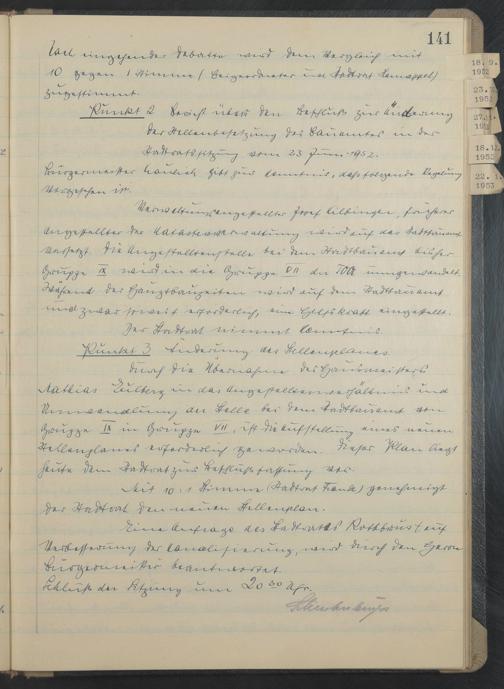 141
Nach eingehender Debatte wird dem Vergleich mit
10 gegen 1 Stimme (Beigeordneter und Stadtrat
zugestimmt.
Punkt 2 Bericht über den Beschluß zur Änderung
der Stellenbesetzung des Bauamtes in der
Stadtratssitzung vom 23 Juni 1952.
Bürgermeister gibt zur Kenntnis, daß folgende Regelung
vorgesehen ist.
Verwaltungsangestellter Josef früherer
Angestellter der Katasterverwaltung wird auf das Stadtbauamt
versetzt. Die Angestelltenstelle bei dem Stadtbauamt bisher
Gruppe IX wird in die Gruppe VII der TOA umgewandelt.
Während der Hauptbauzeiten wird auf dem Stadtbauamt
und zwar soweit erforderlich, eine Hilfskraft eingestellt.
Der Stadtrat nimmt Kenntnis.
Punkt 3 Änderung des Stellenplanes
Durch die Übernahme des Hausmeisters
Mathias in das Angestelltenverhältnis und
Umwandlung der Stelle bei dem Stadtbauamt von
Gruppe IX in Gruppe VII, ist die Aufstellung eines neuen
Stellenplanes erforderlich geworden. Dieser Plan liegt
heute dem Stadtrat zur Beschlußfassung vor.
Mit 10:1 Stimme (Stadtrat Frank) genehmigt
der Stadtrat den neuen Stellenplan.
Eine Anfrage des Stadtrates Rothbrust auf
Verbesserung der Kanalisierung, wird durch den Herrn
Bürgermeister beantwortet.
Schluß der Sitzung um 20 30 Uhr.
18. 9.
1952
23.
195
27.
195
18. 12.
1952
22. 1.
1953